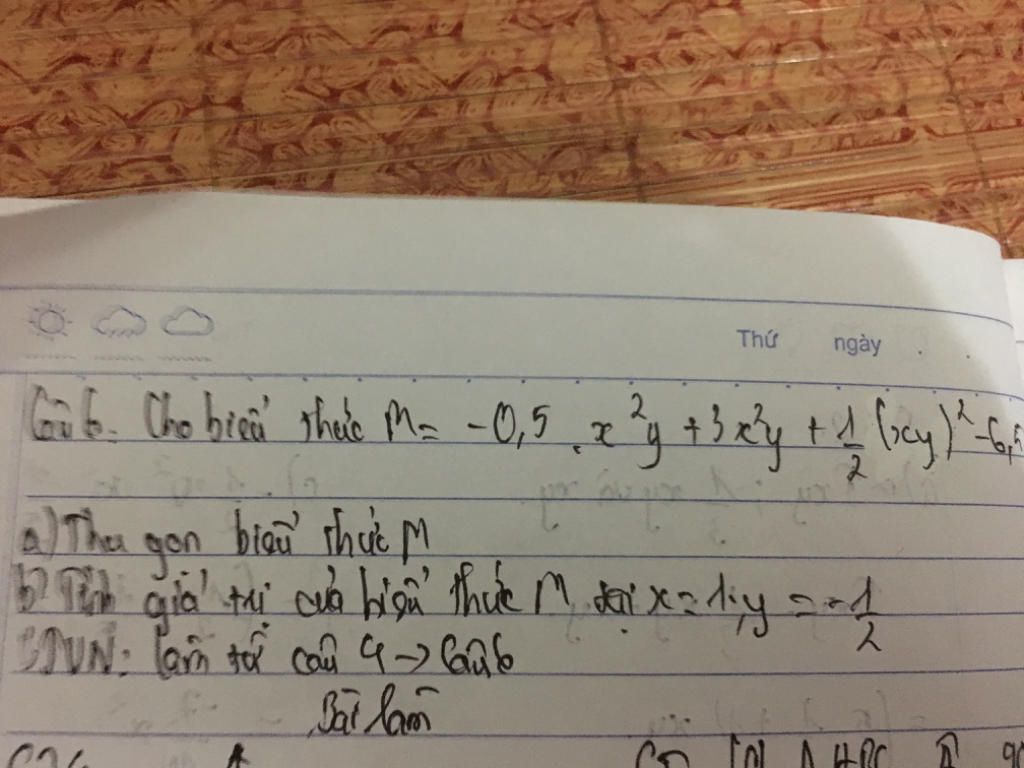 Thứ ngày
Câu 6. Cho biểu thức M = -0,5 . x²y + 3x²y + 1/2 (xy)² - 6,5
a) Thu gọn biểu thức M
b) Tính giá trị của biểu thức M tại x = 1; y = -1/2
BTVN: làm từ câu 4 → Câu 6
Bài làm